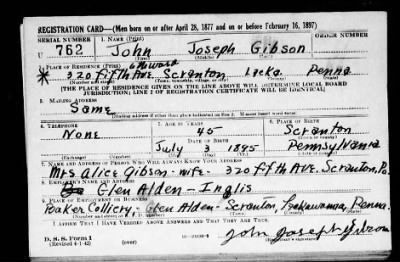 REGISTRATION CARD—(Men born on or after April 28, 1877 and on or before February 16, 1897)
SERIAL NUMBER 1. NAME (Print)
U 762 John Joseph Gibson
(First) (Middle) (Last)
2. PLACE OF RESIDENCE (Print)
* 320 Fifth Ave. Scranton Lacka Penna
[THE PLACE OF RESIDENCE GIVEN ON THE LINE ABOVE WILL DETERMINE LOCAL BOARD
JURISDICTION; LINE 2 OF REGISTRATION CERTIFICATE WILL BE IDENTICAL]
3. MAILING ADDRESS
Same
4. TELEPHONE 5. AGE IN YEARS 6. PLACE OF BIRTH
None 45 Scranton
DATE OF BIRTH
July 3 1895 Pennsylvania
(Exchange) (Number) (Mo.) (Day) (Yr.) (State or country)
7. NAME AND ADDRESS OF PERSON WHO WILL ALWAYS KNOW YOUR ADDRESS
Mrs Alice Gibson - wife - 320 Fifth Ave. Scranton, Pa.
8. EMPLOYER'S NAME AND ADDRESS
Glen Alden - Inglis
9. PLACE OF EMPLOYMENT OR BUSINESS
Baker Colliery - Glen Alden - Scranton, Lackawanna, Penna.
I AFFIRM THAT I HAVE VERIFIED ABOVE ANSWERS AND THAT THEY ARE TRUE.
D. S. S. Form 1
(Revised 4-1-42) (over)
John Joseph Gibson